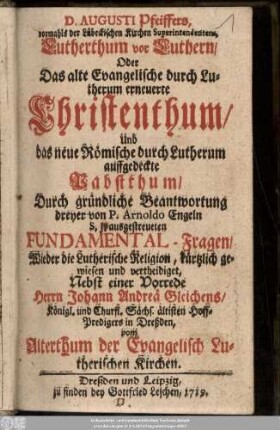 D. AUGUSTI Pfeiffers,
vormahls der Lübeckischen Kirchen Superintendentens,
Lutherthum vor Luthern/
Oder
Das alte Evangelische durch Lu-
therum erneuerte
Christenthum/
Und
das neue Römische durch Lutherum
auffgedeckte
Pabstthum/
Durch gründliche Beantwortung
dreyer von P. Arnoldo Engeln
S. J. ausgestreueten
FUNDAMENTAL-Fragen/
Wieder die Lutherische Religion, kürtzlich ge-
wiesen und vertheidiget,
Nebst einer Vorrede
Herrn Johann Andreä Gleichens/
Königl. und Churfl. Sächs. ältisten Hoff-
Predigers in Dreßden,
vom
Alterthum der Evangelisch Lu-
therischen Kirchen.
Dreßden und Leipzig,
zu finden bey Gottfried Leschen, 1719.